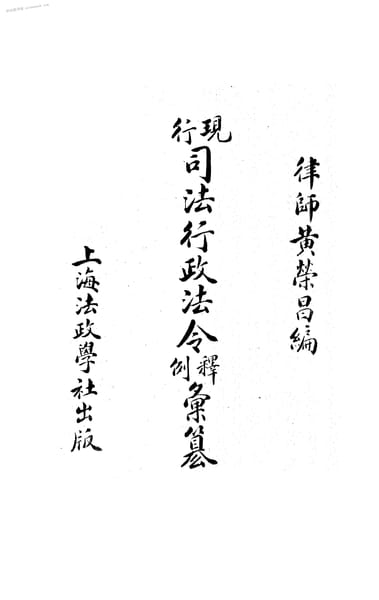 律師黃榮昌編
現行司法行政法令釋例彙纂
上海法政學社出版